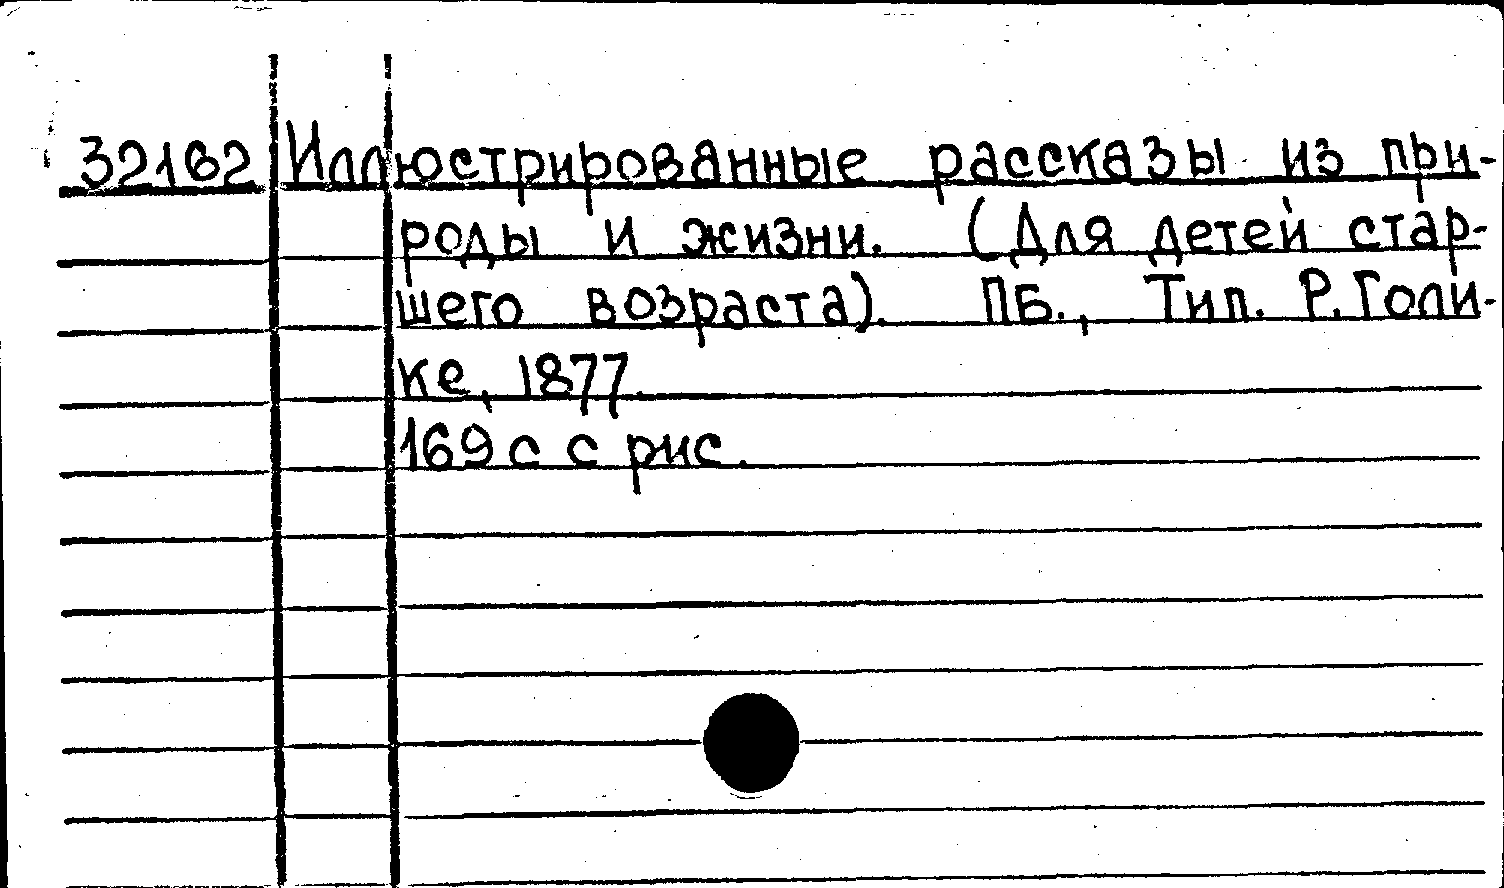 32162 Иллюстрированные рассказы из при-
роды и жизни. (Для детей стар-
шего возраста). ПБ., Тип. Р. Голи-
ке, 1877.
169 с с рис.